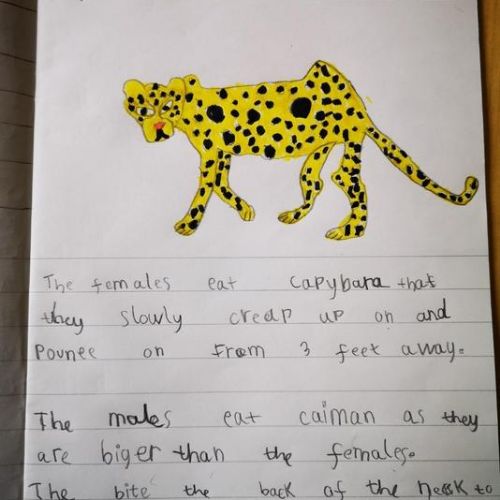 The females eat capybara that
they slowly creap up on and
Pounee on From 3 feet away.
The males eat caiman as they
are biger than the females.
The bite the back of the neck to